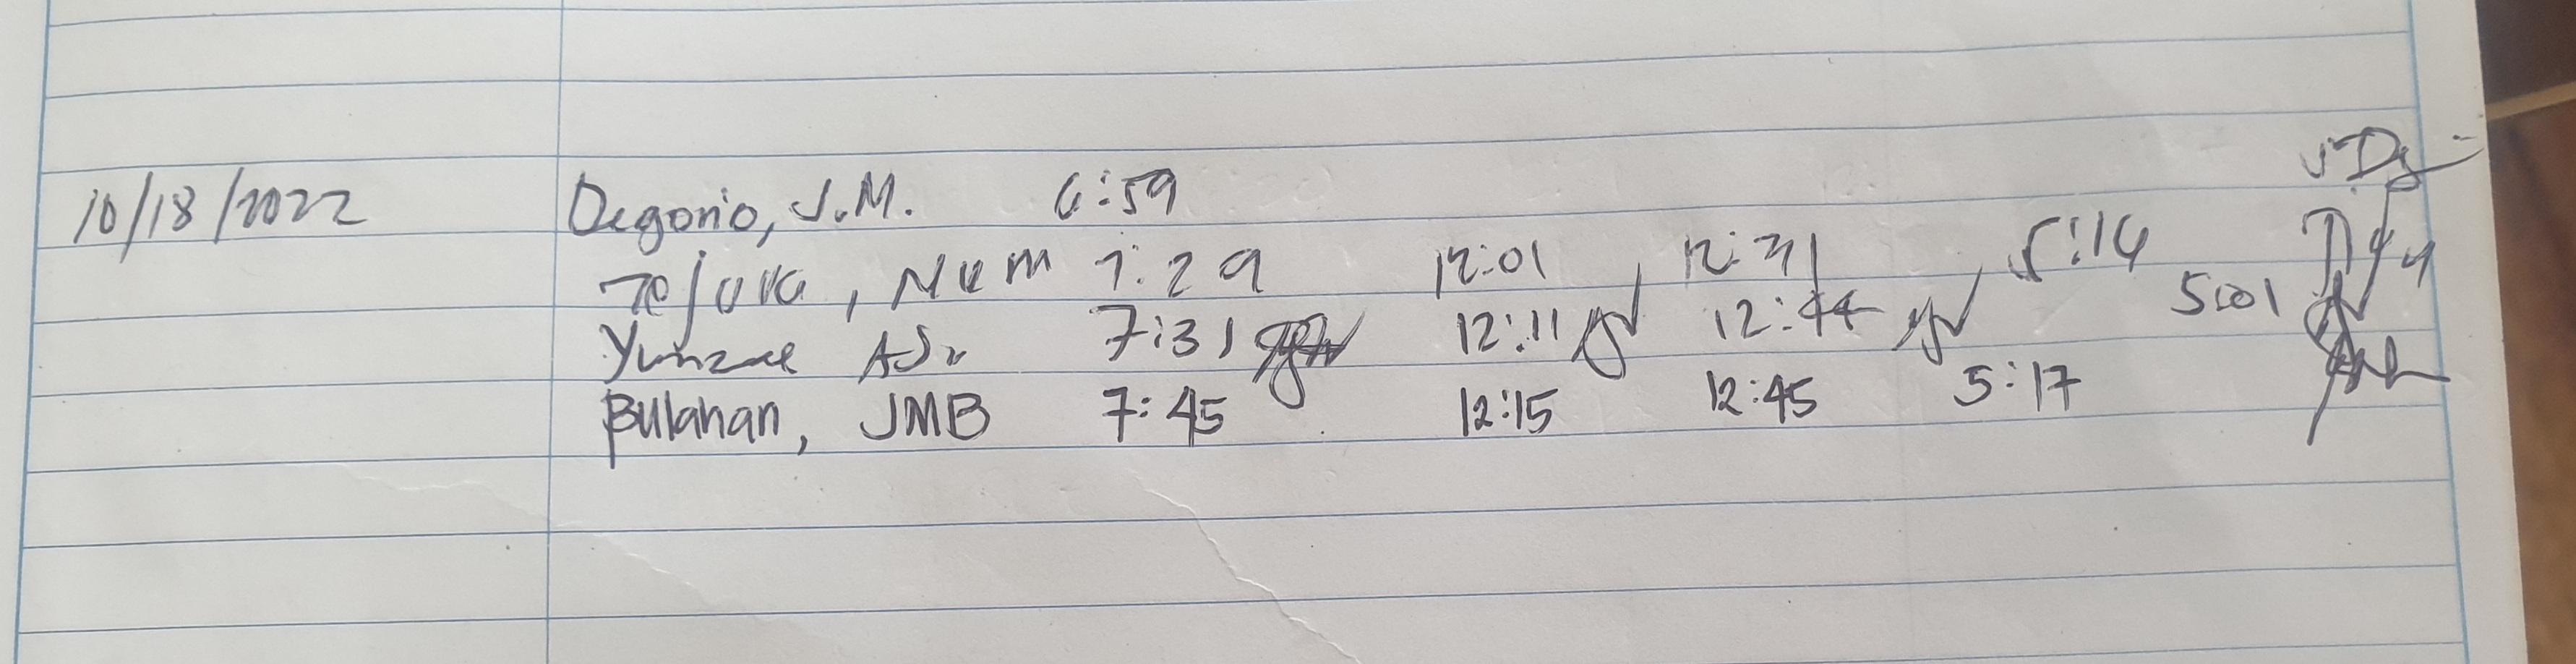 10/18/2022 Degorio, J.M. 6:59
NUM 7:29 12:01 12:31 5:14
7:31 12:11 12:44 5:01
Bulahan, JMB 7:45 12:15 12:45 5:17